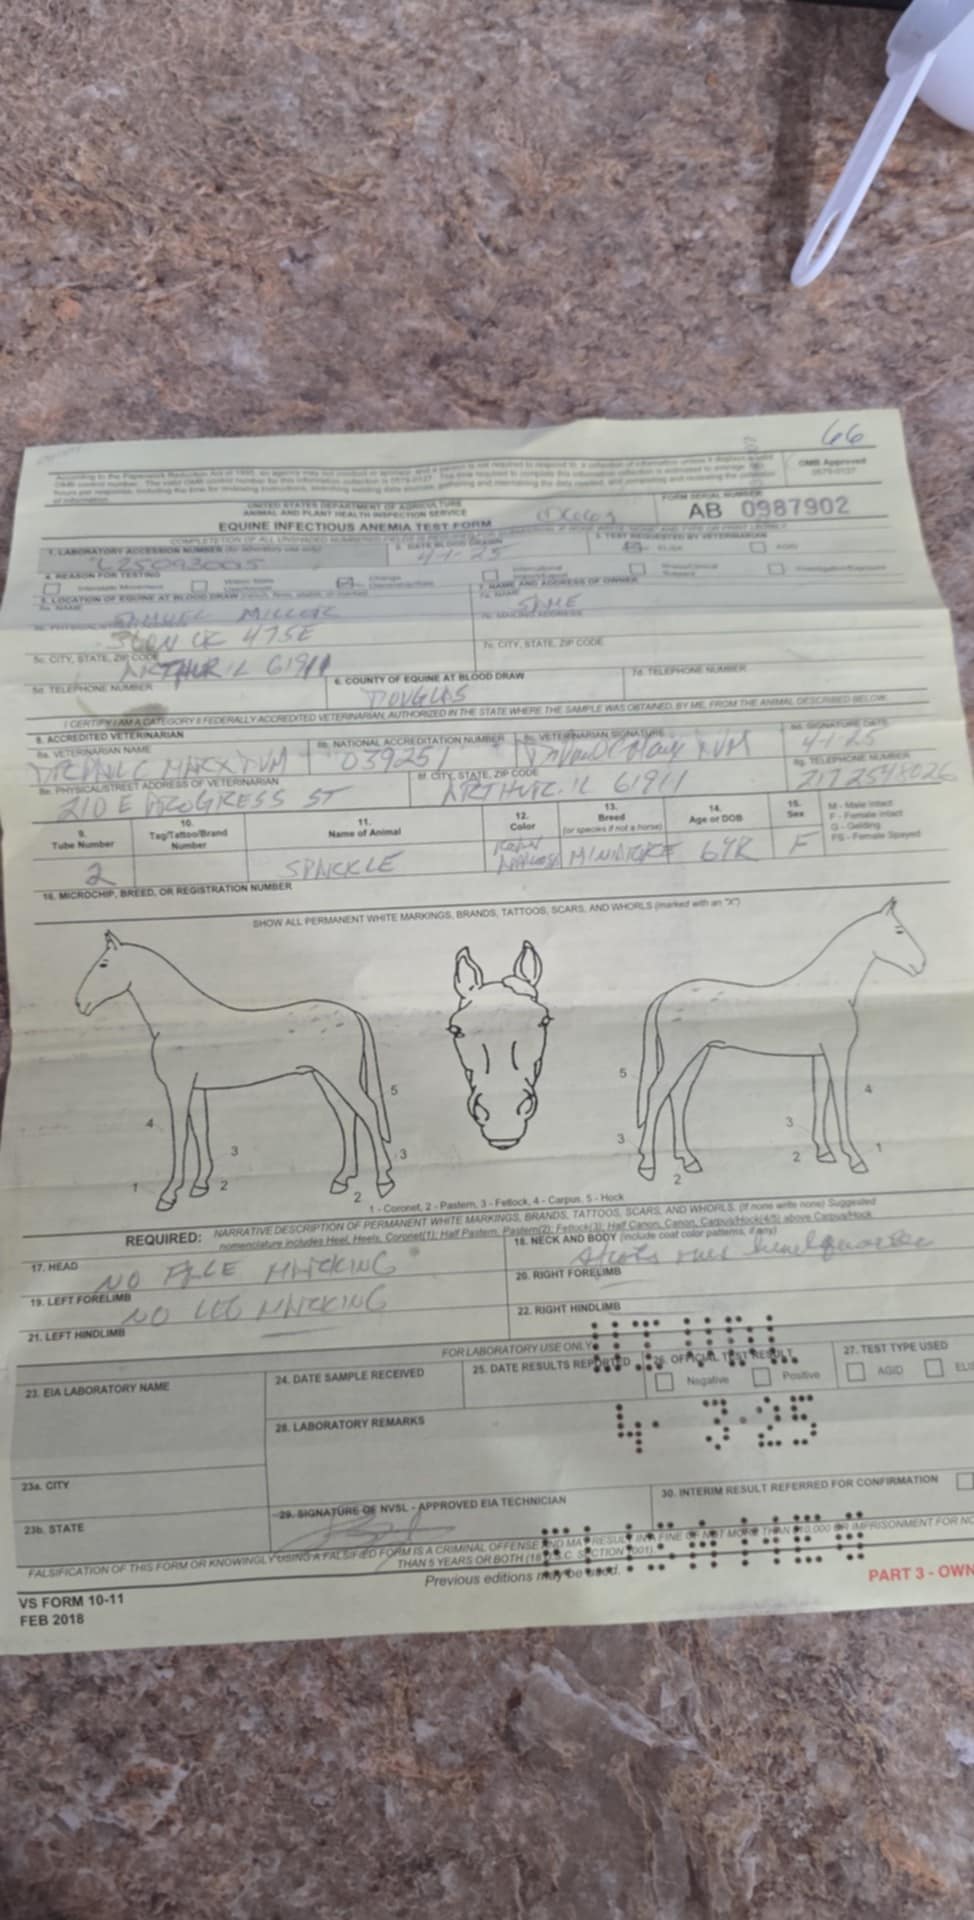 66
According to the Paperwork Reduction Act of 1995, an agency may not conduct or sponsor, and a person is not required to respond to, a collection of information unless it displays a valid
OMB Approved
0579-0127
UNITED STATES DEPARTMENT OF AGRICULTURE
ANIMAL AND PLANT HEALTH INSPECTION SERVICE
EQUINE INFECTIOUS ANEMIA TEST FORM
FORM SERIAL NUMBER
AB 0987902
1. LABORATORY ACCESSION NUMBER (for laboratory use only)
L25093005
2. DATE BLOOD DRAWN
4-1-25
3. TEST REQUESTED BY VETERINARIAN
ELISA
AGID
4. REASON FOR TESTING
5. LOCATION OF EQUINE AT BLOOD DRAW
5a. NAME
MILLER
7. NAME AND ADDRESS OF OWNER
7a. NAME
SAME
7b. MAILING ADDRESS
475E
5c. CITY, STATE, ZIP CODE
ARTHUR IL 61911
7c. CITY, STATE, ZIP CODE
5d. TELEPHONE NUMBER
6. COUNTY OF EQUINE AT BLOOD DRAW
DOUGLAS
7d. TELEPHONE NUMBER
I CERTIFY I AM A CATEGORY II FEDERALLY ACCREDITED VETERINARIAN, AUTHORIZED IN THE STATE WHERE THE SAMPLE WAS OBTAINED, BY ME, FROM THE ANIMAL DESCRIBED BELOW.
8. ACCREDITED VETERINARIAN
8a. VETERINARIAN NAME
8b. NATIONAL ACCREDITATION NUMBER
039251
8c. VETERINARIAN SIGNATURE
8d. SIGNATURE DATE
4-1-25
8e. PHYSICAL/STREET ADDRESS OF VETERINARIAN
210 E PROGRESS ST
8f. CITY, STATE, ZIP CODE
ARTHUR. IL 61911
8g. TELEPHONE NUMBER
217 2548026
9.
Tube Number
10.
Tag/Tattoo/Brand
Number
11.
Name of Animal
12.
Color
13.
Breed
(or species if not a horse)
14.
Age or DOB
15.
Sex
M - Male Intact
F - Female Intact
G - Gelding
FS - Female Spayed
2
SPARKLE
6YR
F
16. MICROCHIP, BREED, OR REGISTRATION NUMBER
SHOW ALL PERMANENT WHITE MARKINGS, BRANDS, TATTOOS, SCARS, AND WHORLS (marked with an "X")
5
4
3
3
1
2
2
5
4
3
3
2
1
2
1 - Coronet, 2 - Pastern, 3 - Fetlock, 4 - Carpus, 5 - Hock
REQUIRED: NARRATIVE DESCRIPTION OF PERMANENT WHITE MARKINGS, BRANDS, TATTOOS, SCARS, AND WHORLS. (If none write none) Suggested
nomenclature includes Heel, Heels, Coronet(1); Half Pastern, Pastern(2); Fetlock(3); Half Canon, Canon, Carpus/Hock(4/5) above Carpus/Hock
17. HEAD
NO FACE MARKING
18. NECK AND BODY (include coat color patterns, if any)
Spots over hindquarter
19. LEFT FORELIMB
NO LEG MARKING
20. RIGHT FORELIMB
21. LEFT HINDLIMB
22. RIGHT HINDLIMB
FOR LABORATORY USE ONLY
23. EIA LABORATORY NAME
24. DATE SAMPLE RECEIVED
25. DATE RESULTS REPORTED
26. OFFICIAL TEST RESULT
Negative
Positive
27. TEST TYPE USED
AGID
ELIS
28. LABORATORY REMARKS
4-3-25
23a. CITY
23b. STATE
29. SIGNATURE OF NVSL - APPROVED EIA TECHNICIAN
30. INTERIM RESULT REFERRED FOR CONFIRMATION
FALSIFICATION OF THIS FORM OR KNOWINGLY USING A FALSIFIED FORM IS A CRIMINAL OFFENSE AND MAY RESULT IN A FINE OF NOT MORE THAN $10,000 OR IMPRISONMENT FOR NO
THAN 5 YEARS OR BOTH (18 U.S.C. SECTION 1001).
VS FORM 10-11
FEB 2018
Previous editions may be used.
PART 3 - OWN